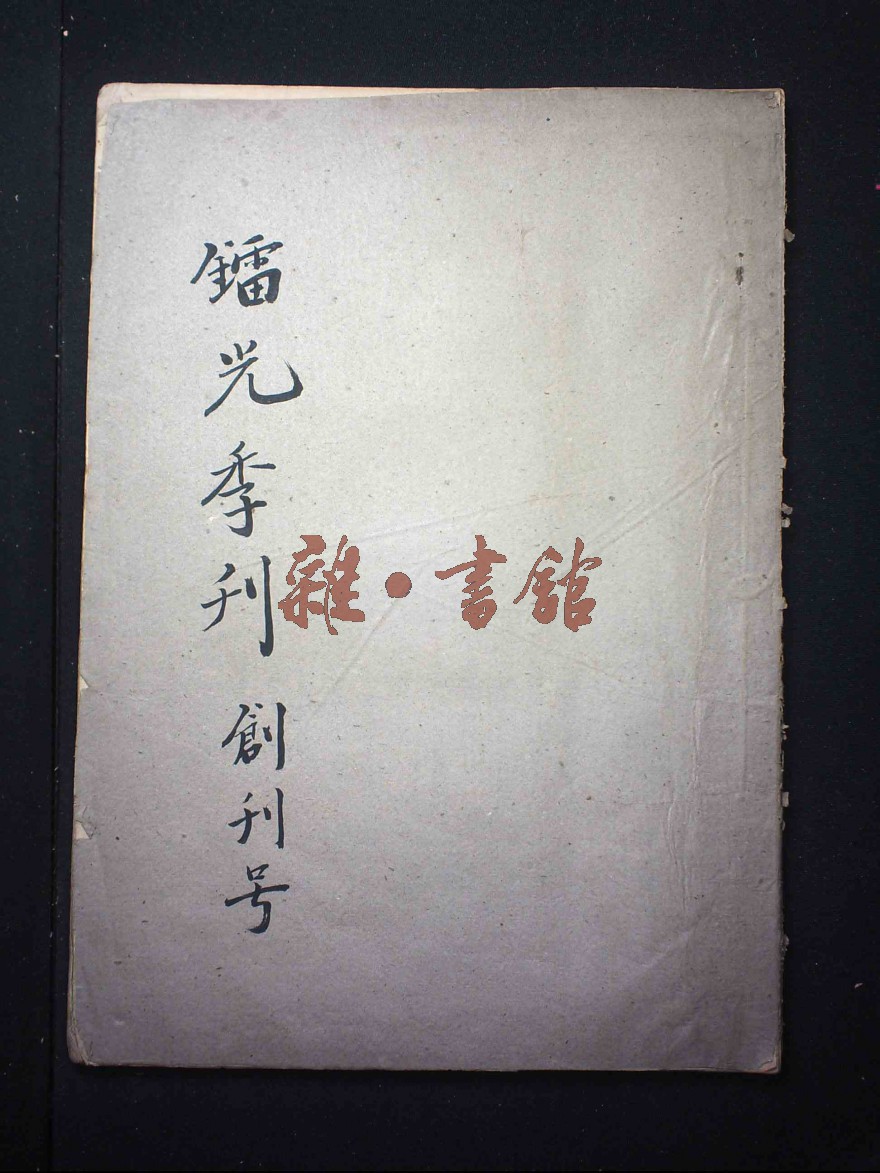 鐳光季刊 創刊号
雜·書館